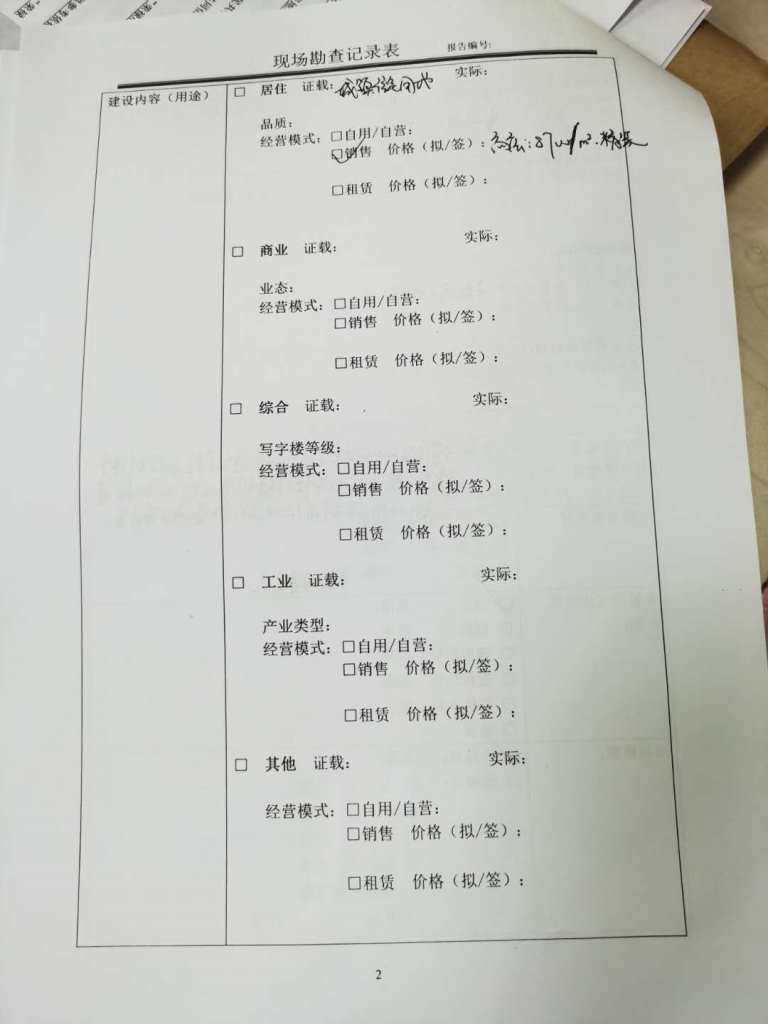 现场勘查记录表 报告编号:
建设内容（用途）
□ 居住 证载: 城镇住宅用地 实际:
品质:
经营模式: □自用/自营:
☑销售 价格（拟/签）:
□租赁 价格（拟/签）:
□ 商业 证载: 实际:
业态:
经营模式: □自用/自营:
□销售 价格（拟/签）:
□租赁 价格（拟/签）:
□ 综合 证载: 实际:
写字楼等级:
经营模式: □自用/自营:
□销售 价格（拟/签）:
□租赁 价格（拟/签）:
□ 工业 证载: 实际:
产业类型:
经营模式: □自用/自营:
□销售 价格（拟/签）:
□租赁 价格（拟/签）:
□ 其他 证载: 实际:
经营模式: □自用/自营:
□销售 价格（拟/签）:
□租赁 价格（拟/签）:
2